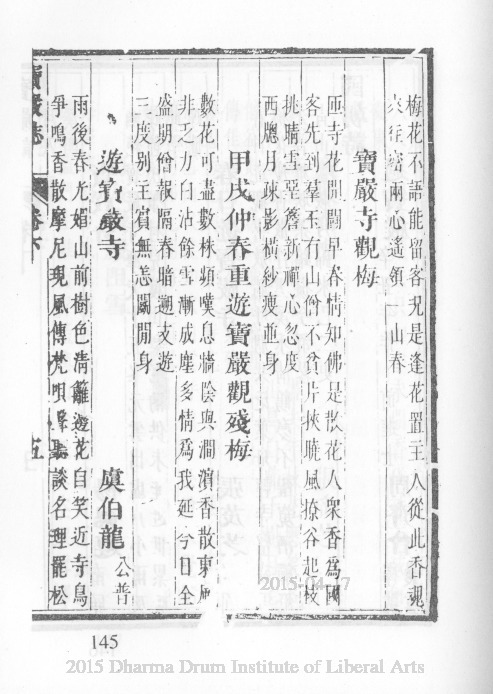 梅花不語能留客況是逢花置主人從此香魂
來往密兩心遙領一山春
寶嚴寺觀梅
匝寺花開闘早春情知佛是散花人衆香爲國
客先到羣玉有山僧不貧片挾曉風撩谷起枝
挑晴雪堊簷新禪心忽度
西牕月疎影橫紗瘦並身
甲戌仲春重遊寶嚴觀殘梅
數花可盡數株頻嘆息牆陰與澗濱香散東風
非乏力白沾餘雪漸成塵多情爲我延今日全
盛期僧報隔春暗遡支遊
三度别主賓無恙闘閒身
遊寶嚴寺
虞伯龍 公普
雨後春光媚山前樹色清籬邊花自笑近寺鳥
爭鳴香散摩尼現風傳梵唄聽談名理罷松
寶嚴志
卷六
五
145
2015-04-17
2015 Dharma Drum Institute of Liberal Arts